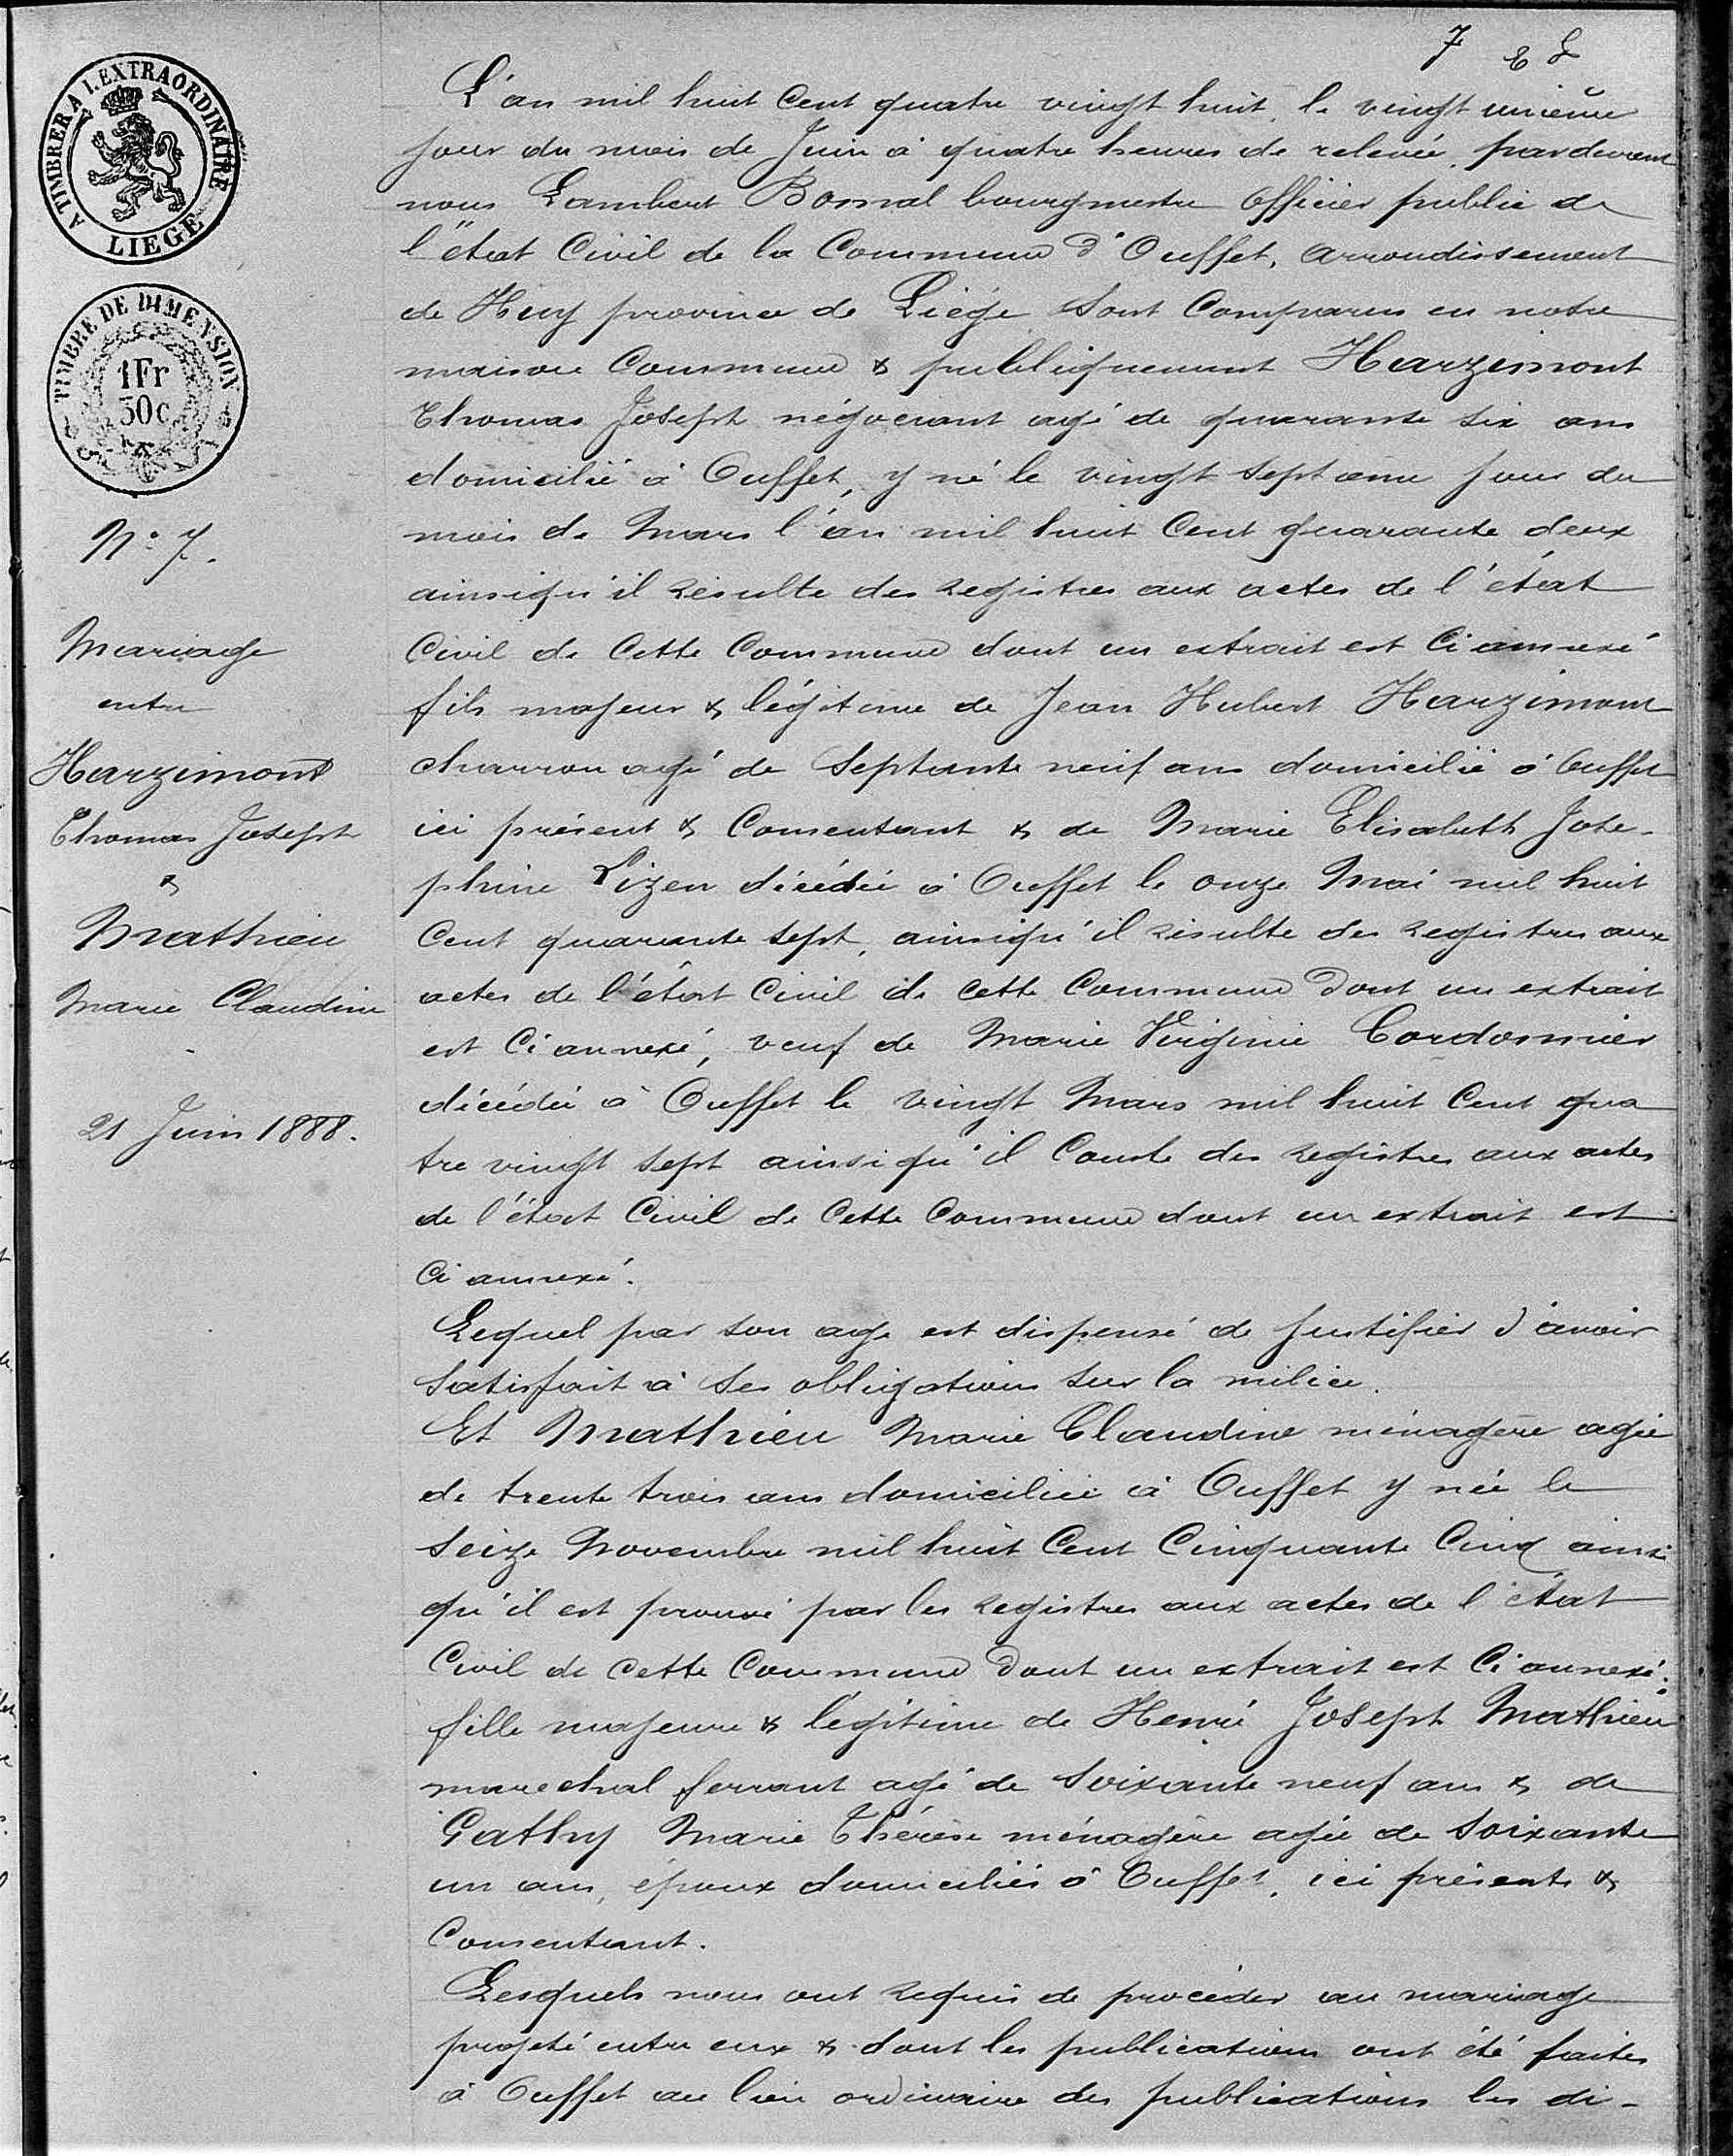 7
A TIMBRER A L'EXTRAORDINAIRE
LIEGE
TIMBRE DE DIMENSION
1Fr
50c
N° 7.
Mariage
entre
Harzimont
Thomas Joseph
&
Mathieu
Marie Claudine
21 Juin 1888.
L'an mil huit Cent quatre vingt huit, le vingt unième
jour du mois de Juin à quatre heures de relevée, pardevant
nous Lambert Bonnal bourgmestre Officier public de
l'état Civil de la Commune d'Ouffet, arrondissement
de Huy province de Liége Sont Comparus en notre
maison Commune & publiquement Harzimont
Thomas Joseph négociant agé de quarante six ans
domicilié à Ouffet, y né le vingt Septieme jour du
mois de Mars l'an mil huit Cent quarante deux
ainsiqu'il résulte des registres aux actes de l'état
Civil de Cette Commune dont un extrait est Ci annexé
fils majeur & légitime de Jean Hubert Harzimont
charron agé de Septante neuf ans domicilié à Ouffet
ici présent & Consentant & de Marie Elisabeth José-
phine Lizen décédée à Ouffet le onze Mai mil huit
Cent quarante Sept, ainsiqu'il résulte des registres aux
actes de l'état Civil de Cette Commune dont un extrait
est Ci annexé, veuf de Marie Virginie Cordonnier
décédée à Ouffet le vingt Mars mil huit Cent qua
tre vingt sept ainsi qu'il Conste des registres aux actes
de l'état Civil de Cette Commune dont un extrait est
Ci annexé.
Lequel par son age est dispensé de justifier d'avoir
Satisfait à Ses obligations sur la milice.
Et Mathieu Marie Claudine ménagère agée
de trente trois ans domiciliée à Ouffet y née le
Seize Novembre mil huit Cent Cinquante Cinq ainsi
qu'il est prouvé par les registres aux actes de l'état
Civil de Cette Commune dont un extrait est Ci annexé;
fille majeure & légitime de Henri Joseph Mathieu
marechal ferrant agé de Soixante neuf ans & de
Gathy Marie Thérèse ménagère agée de Soixante
un ans, époux domiciliés à Ouffet, ici présents &
Consentant.
Lesquels nous ont requis de procéder au mariage
projeté entre eux & dont les publications ont été faites
à Ouffet au lieu ordinaire des publications les di-